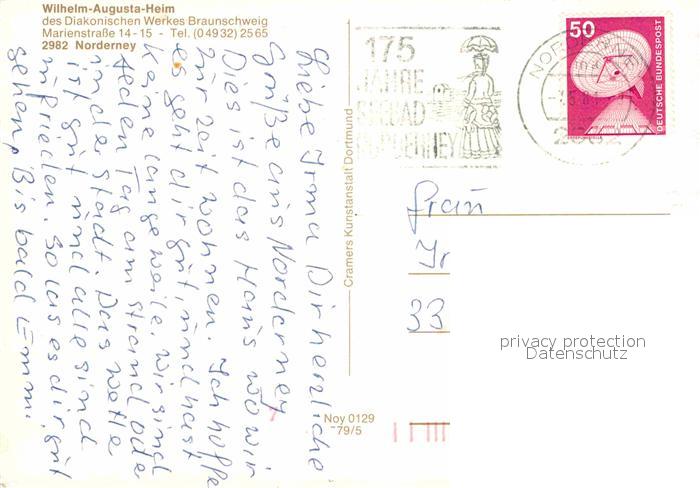 Wilhelm-Augusta-Heim
des Diakonischen Werkes Braunschweig
Marienstraße 14-15 - Tel. (04932) 2565
2982 Norderney
Liebe Irma Dir herzliche
Grüße aus Norderney
Dies ist das Haus wo wir
zur Zeit wohnen. Ich hoffe
es geht dir gut, und hast
keine langeweile, wir sind
jeden Tag am Strand oder
in der Stadt. Das Wetter
ist gut und alle sind
zufrieden. So las es dir gut
gehen, Bis bald Emmi.
Cramers Kunstanstalt Dortmund
Noy 0129
79/5
175
JAHRE
NORDERNEY
50
DEUTSCHE BUNDESPOST
Frau
Ir
33
privacy protection
Datenschutz